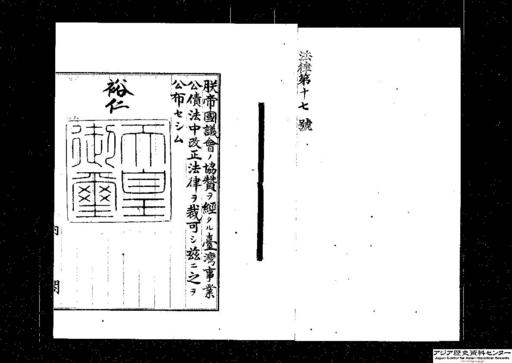 法律第十七號
朕帝國議會ノ協贊ヲ經タル臺灣事業
公債法中改正法律ヲ裁可シ玆ニ之ヲ
公布セシム
裕仁
天皇
御璽
内閣
アジア歴史資料センター
Japan Center for Asian Historical Records